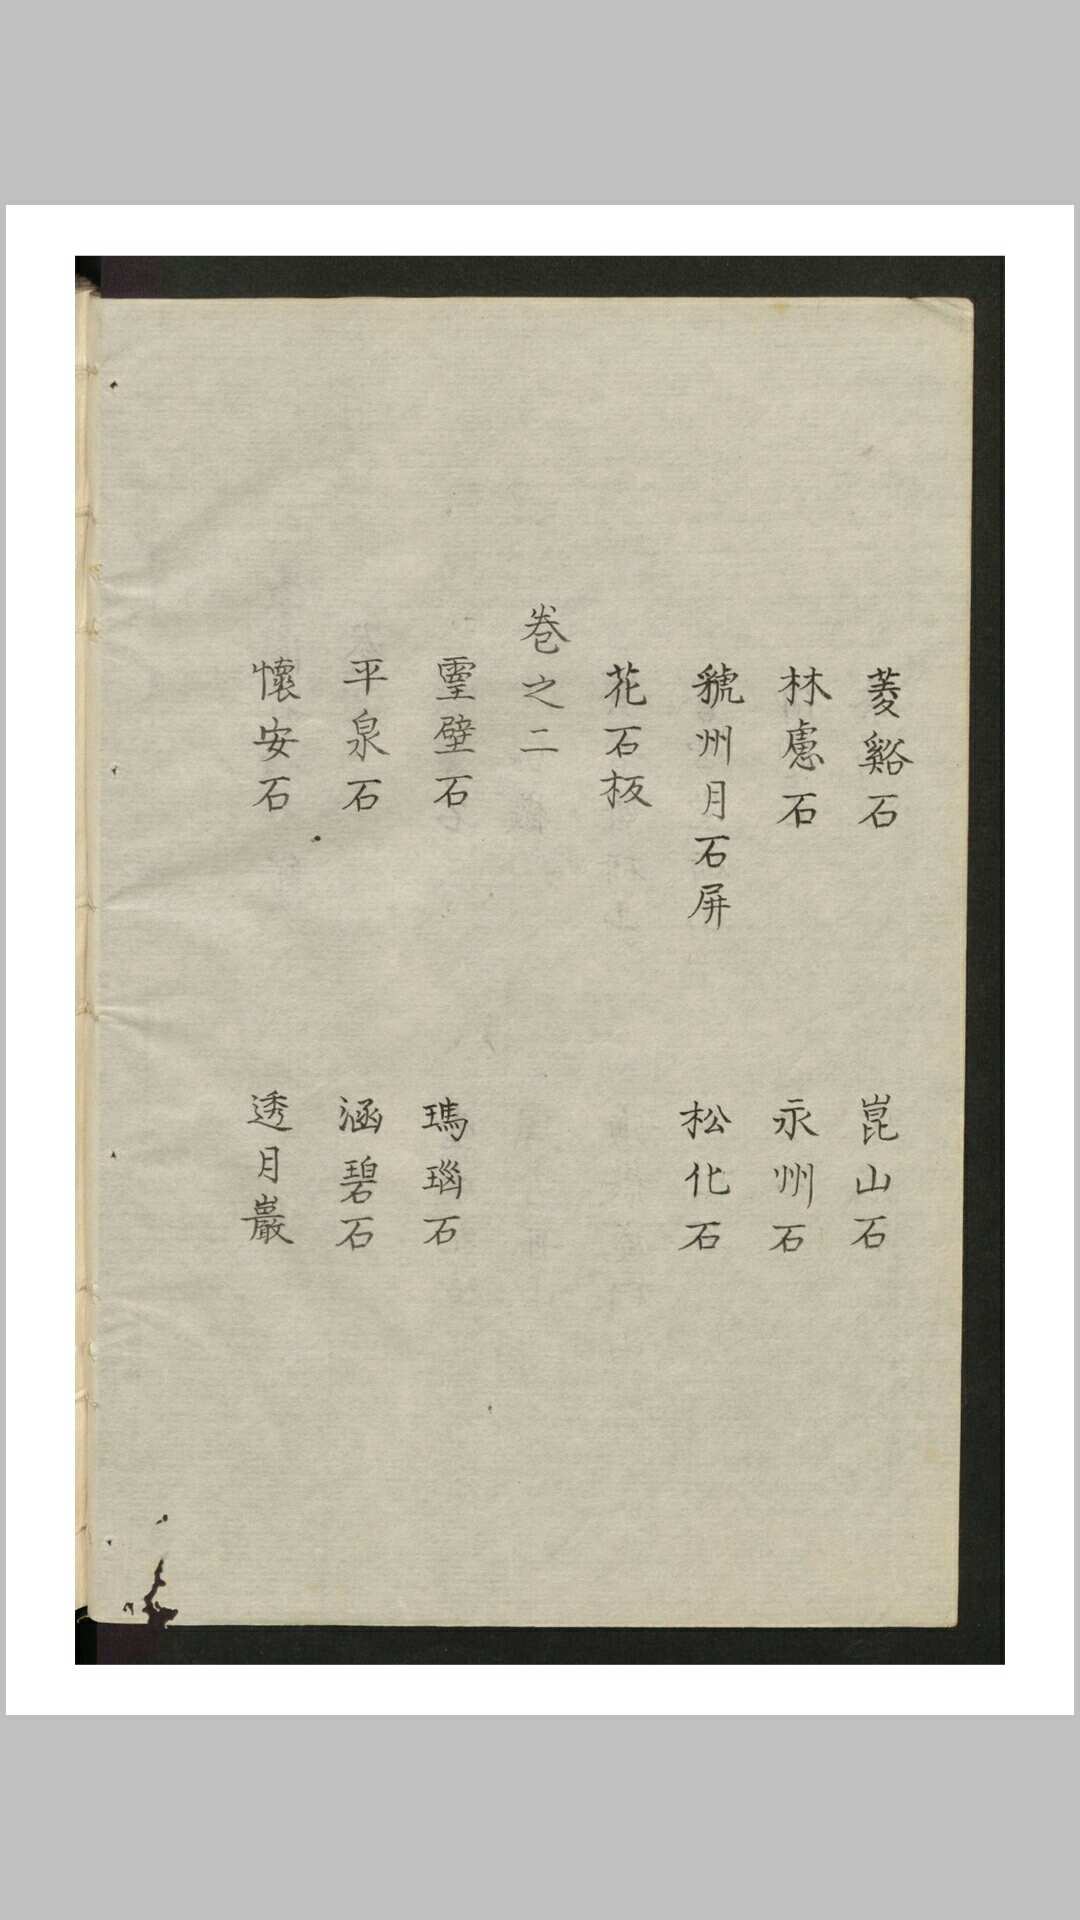 菱谿石　崑山石
林慮石　永州石
虢州月石屏　松化石
花石板
卷之二
靈壁石　瑪瑙石
平泉石　涵碧石
懷安石　透月巖